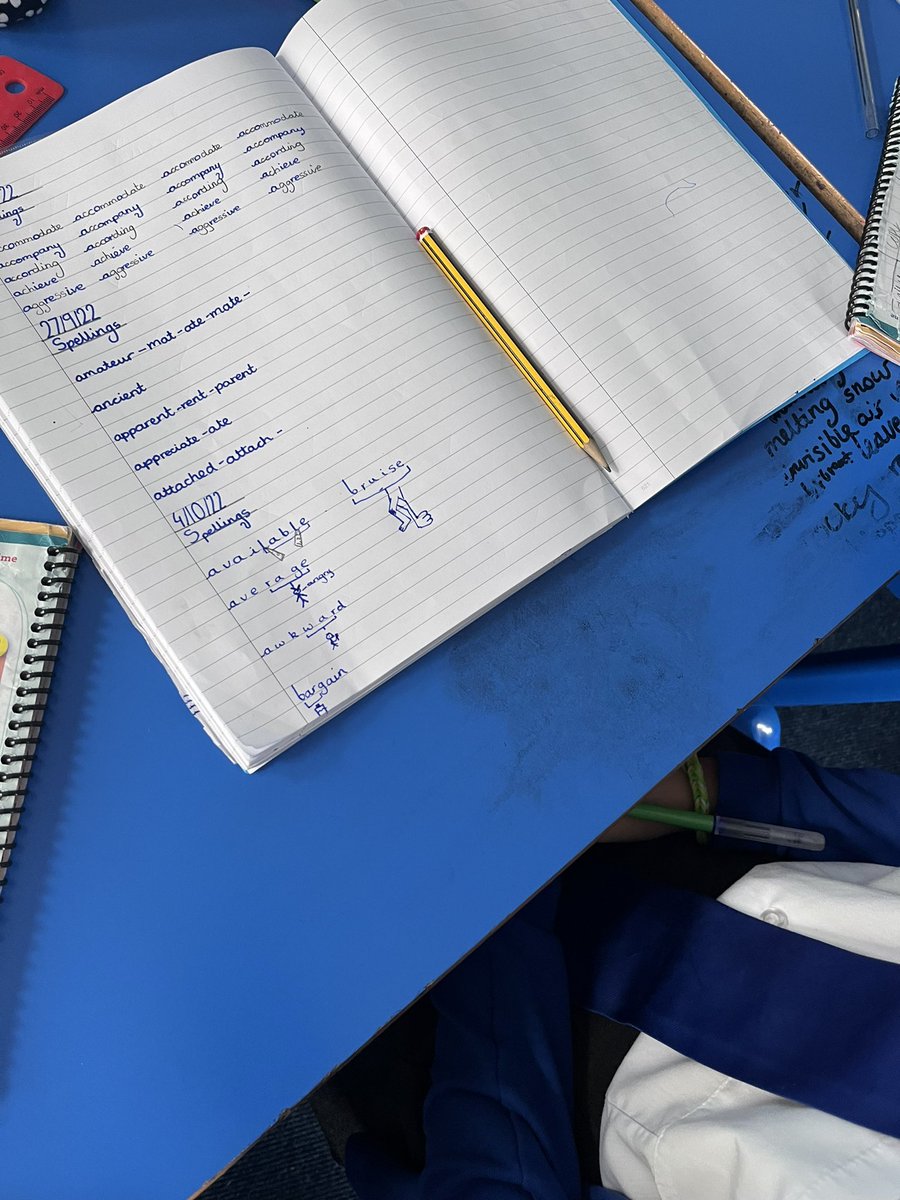 22
ings
accommodate accommodate accommodate accommodate
accompany accompany accompany accompany
according according according according
achieve achieve achieve achieve
aggressive aggressive aggressive aggressive
27/9/22
Spellings
amateur - mat - ate - mate -
ancient
apparent - rent - parent
appreciate - ate
attached - attach -
4/10/22
Spellings
available
average
angry
awkward
bargain
bruise
melting snow
invisible air
leave
me